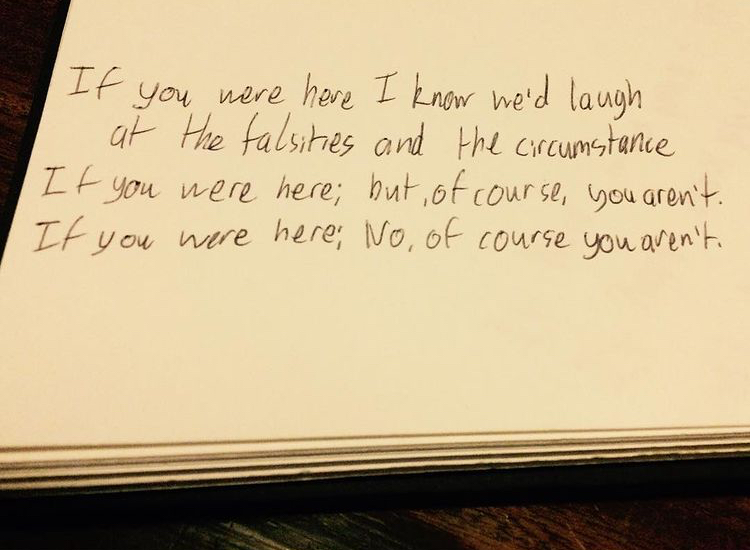 If you were here I know we'd laugh
at the falsities and the circumstance
If you were here; but, of course, you aren't.
If you were here; No, of course you aren't.